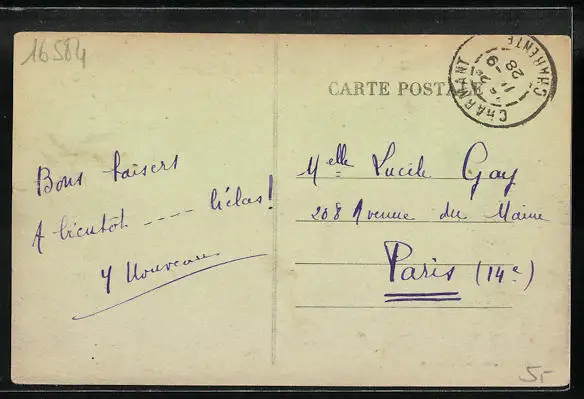 16584
CARTE POSTALE
CHARMANT
CHARENTE
28
Bons baisers
A bientôt ---- hélas!
Y Nouveau
Melle Lucile Gay
208 Avenue du Maine
Paris (14e)
5-